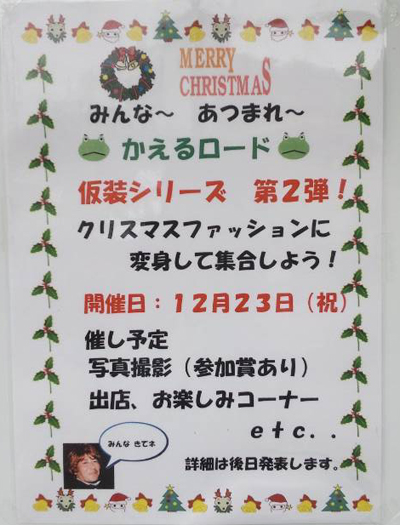 MERRY
CHRISTMAS
みんな～　あつまれ～
かえるロード
仮装シリーズ　第２弾！
クリスマスファッションに
変身して集合しよう！
開催日：１２月２３日（祝）
催し予定
写真撮影（参加賞あり）
出店、お楽しみコーナー
ｅｔｃ．．
みんな きてネ
詳細は後日発表します。